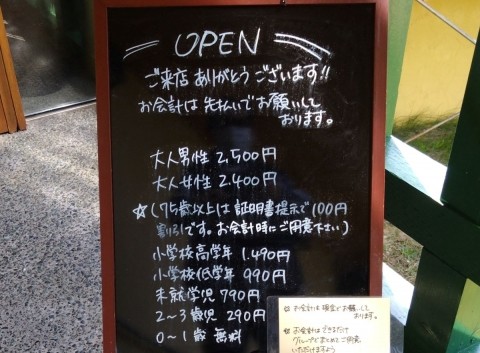 OPEN
ご来店ありがとうございます!!
お会計は先払いでお願いして
おります。
大人男性 2,500円
大人女性 2,400円
☆(75歳以上は証明書提示で100円
割引です。お会計時にご用意下さい)
小学校高学年 1,490円
小学校低学年 990円
未就学児 790円
2〜3歳児 290円
0〜1歳 無料
☆ お会計は現金でお願いして
おります。
☆ お会計はできるだけ
グループでまとめてご用意
いただけますよう